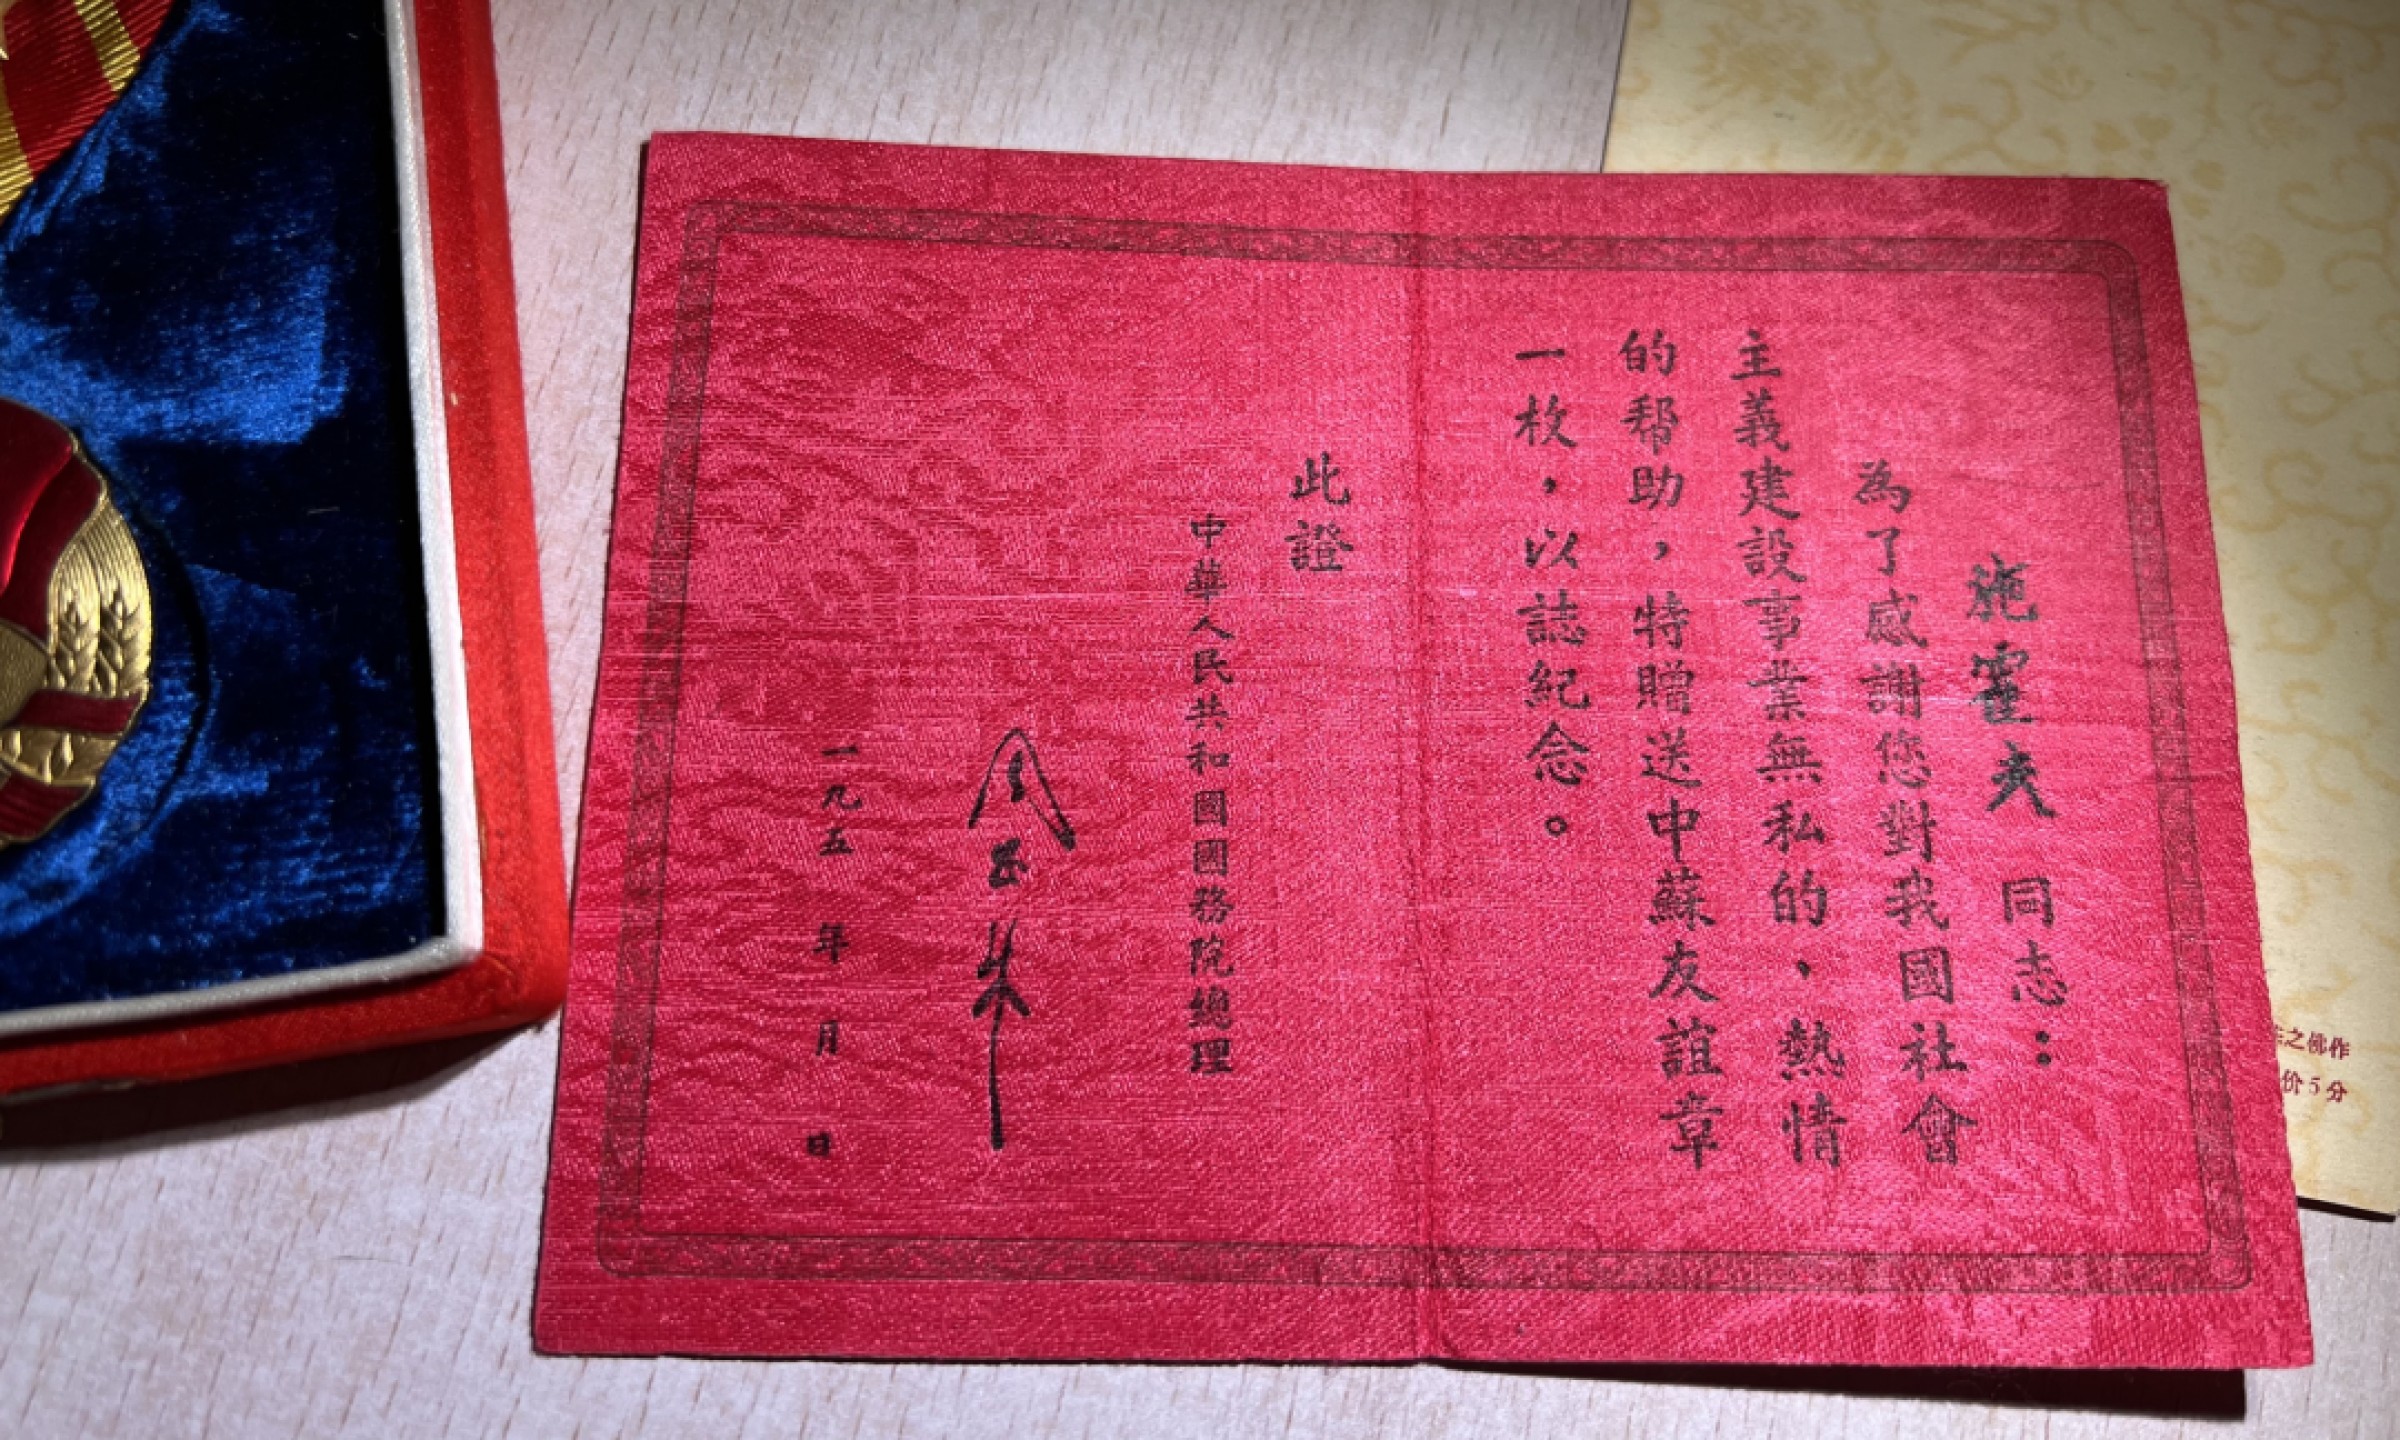 施霍夫同志：
為了感謝您對我國社會
主義建設事業無私的、熱情
的帮助，特贈送中蘇友誼章
一枚，以誌紀念。
此證
中華人民共和國國務院總理
周恩来
一九五 年 月 日
之佛作
价5分